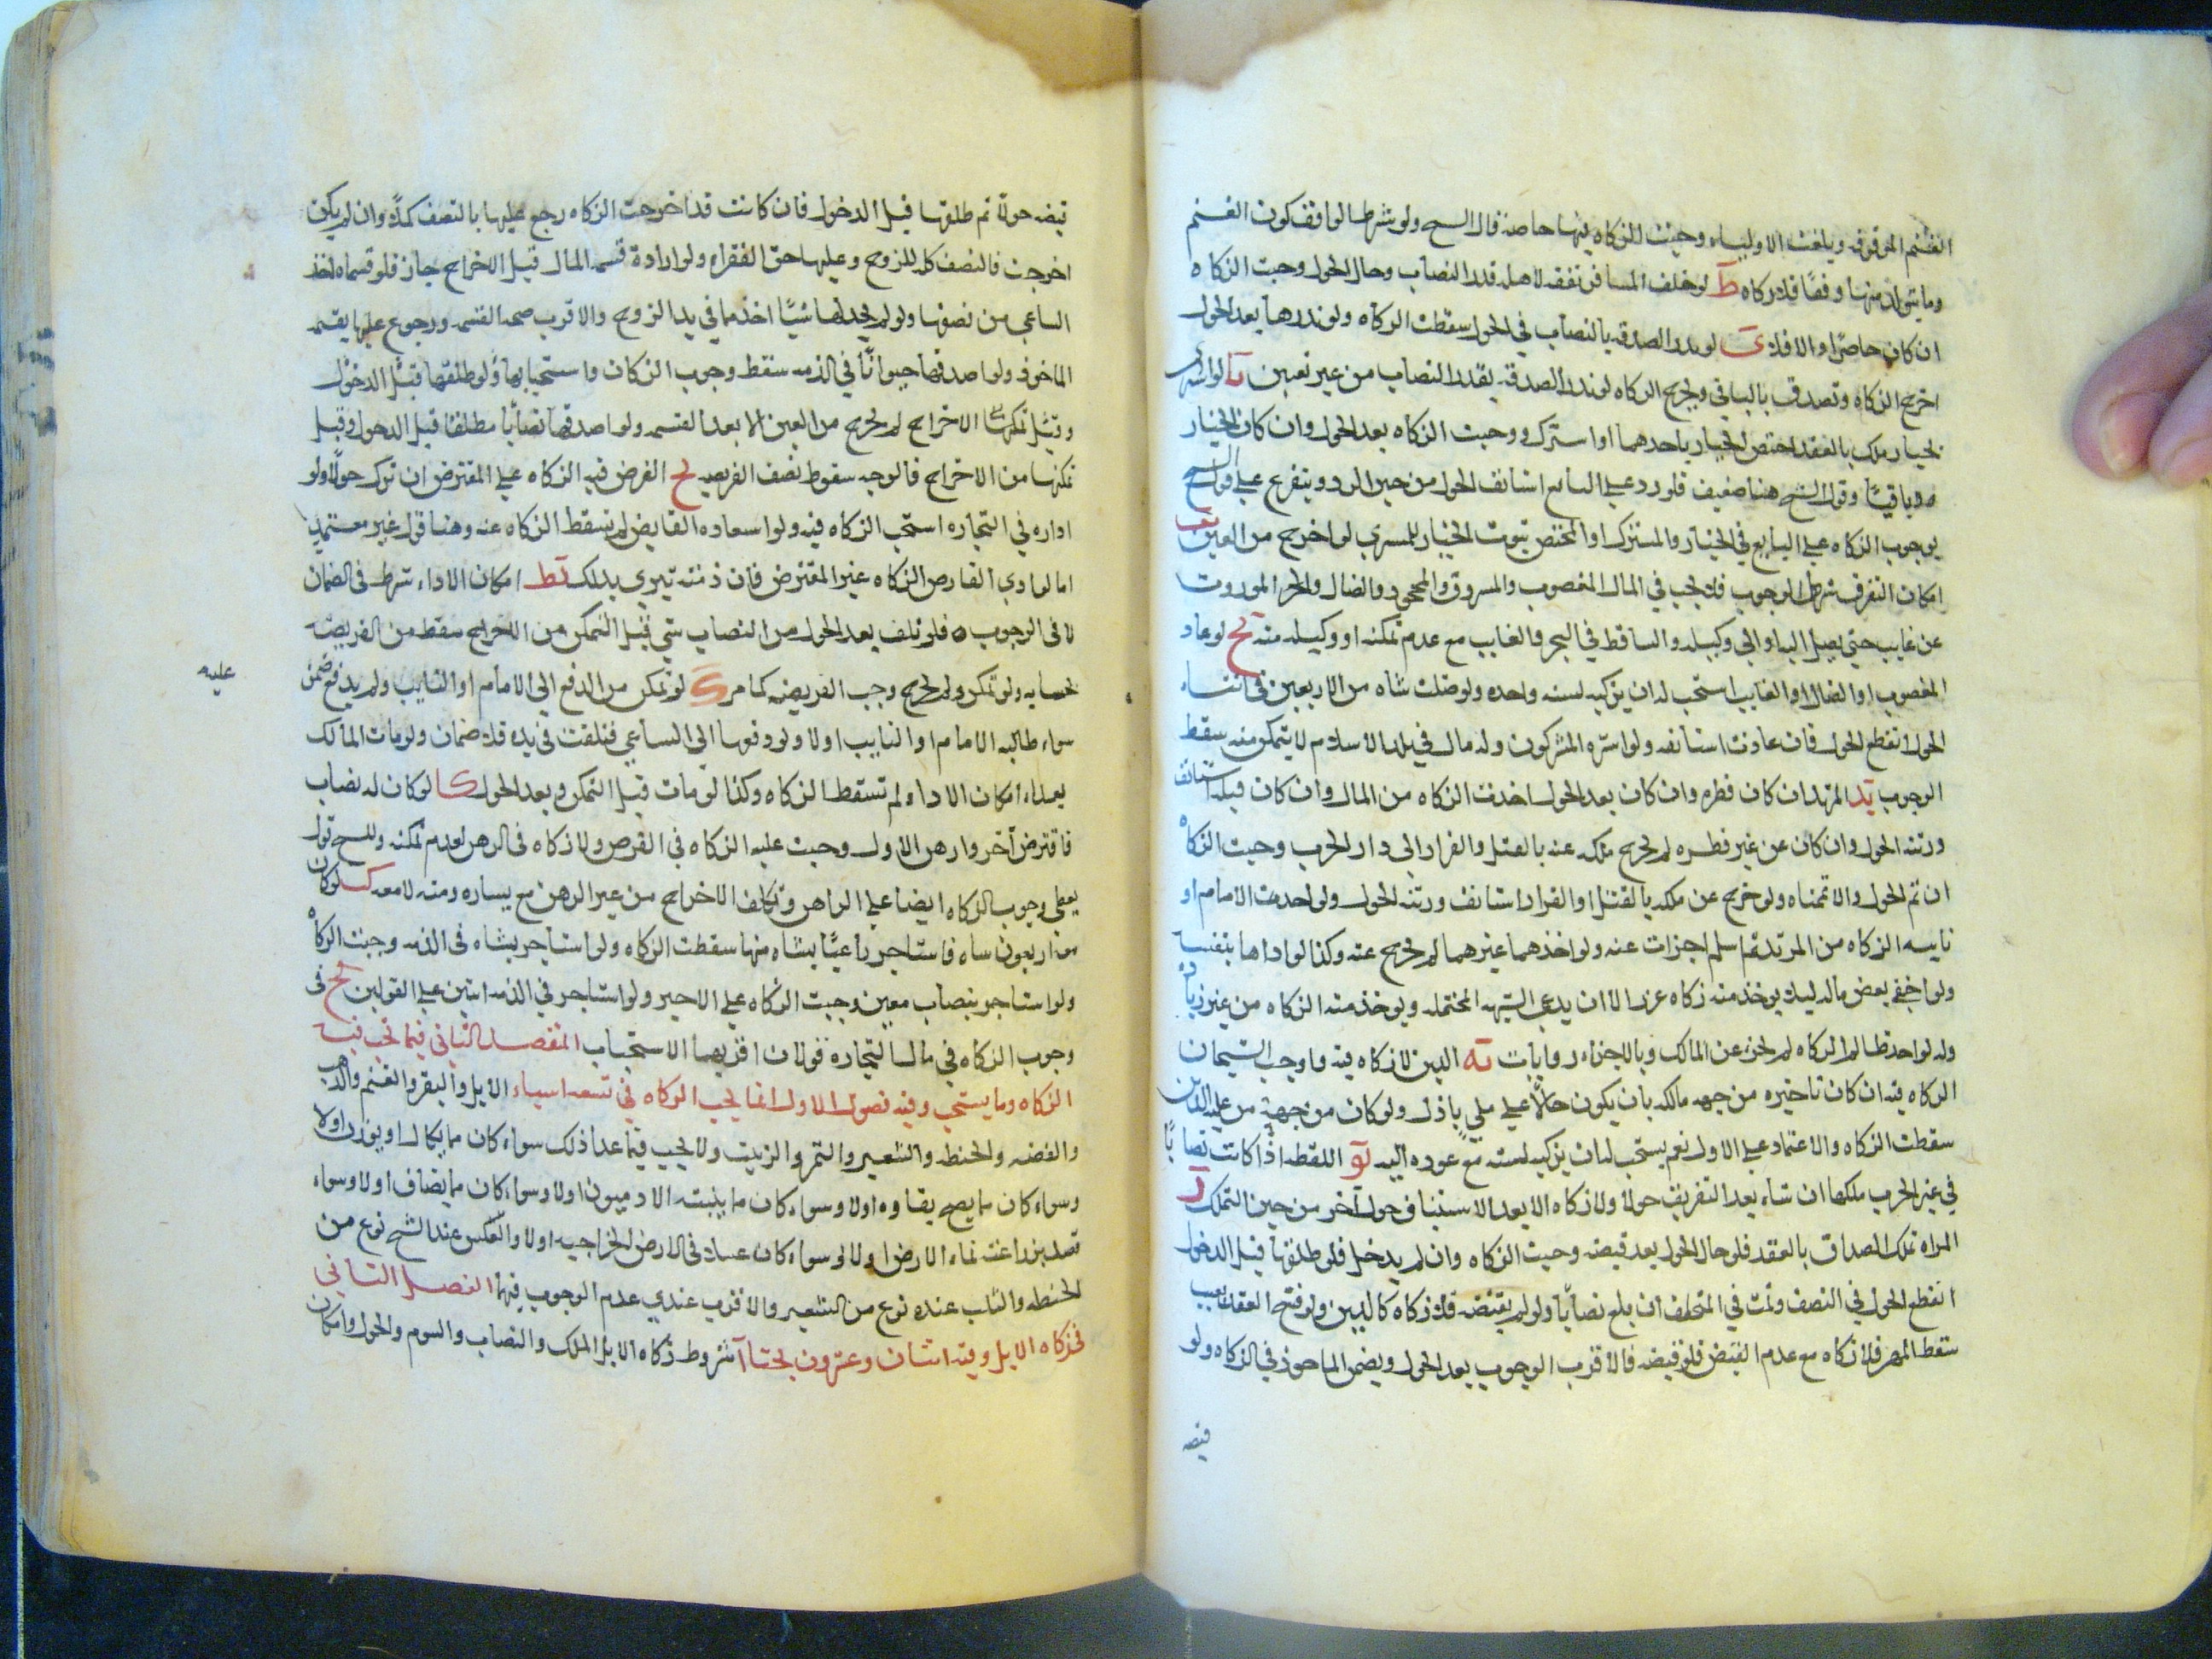 الغنم الموقوفه وبلغت الاولياء وجبت الزكاه فيها خاصه قال الشيخ ولو شرط الواقف كون الغنم
وما يتولد منها وقفا فلا زكاه ط لو خلف المسافر نفقه لاهله قدر النصاب وحال الحول وجبت الزكاه
ان كان حاضرا والا فلا ى لو نذر الصدقه بالنصاب في الحول سقطت الزكاه ولو نذرها بعد الحول
اخرج الزكاه وتصدق بالباقي ويخرج الزكاه لو نذر الصدقه بقدر النصاب من غير تعيين يا لو اشترى
بخيار ملك بالعقد اختص الخيار باحدهما او اشترك ووجبت الزكاه بعد الحول وان كان الخيار
باقيا وقول الشيخ هنا ضعيف فلو رد على البايع استانف الحول من حين الرد ويتفرع على قول الشيخ
بوجوب الزكاه على البايع في الخيار المشترك او المختص ثبوت الخيار للمشتري لو اخرج من العين يب
امكان التصرف شرط الوجوب فلا تجب في المال المغصوب والمسروق والمجحود والضال والموروث
عن غايب حتى يصل اليه او الى وكيله والساقط في البحر والغايب مع عدم تمكنه او وكيله منه يج لو عاد
المغصوب او الضال او الغايب استحب له ان يزكيه لسنه واحده ولو ضلت شاه من الاربعين في اثناء
الحول انقطع الحول فان عادت استانفه ولو اسره المشركون وله مال في بلد الاسلام لا يتمكن منه سقط
الوجوب يد المرتد ان كان فطره وان كان بعد الحول اخذت الزكاه من المال وان كان قبله استانف
ورثته الحول وان كان عن غير فطره لم يخرج ملكه عنه بالقتل والفرار الى دار الحرب وجبت الزكاه
ان تم الحول والا تممناه ولو خرج عن ملكه بالقتل او الفرار استانف ورثته الحول ولو اخذت الامام او
نايبه الزكاه من المرتد ثم اسلم اجزات عنه ولو اخذهما غيرهما لم يخرج عنه وكذا لو اداها بنفسه
ولو اخفى بعض ماله ليلا يوخذ منه زكاه عزر الا ان يدعي الشبهه المحتمله ويوخذ منه الزكاه من غير زياده
ولو اخذ ظالم الزكاه لم يجز عن المالك وبالاجزاء روايات يه الدين لا زكاه فيه واوجب الشيخان
الزكاه فيه ان كان تاخيره من جهه مالكه بان يكون حالا على ملي باذل ولو كان من جهة من عليه الدين
سقطت الزكاه والاعتماد على الاول نعم يستحب له ان يزكيه لسنه مع عوده اليه يو اللقطه اذا كانت نصابا
في غير الحرم ملكها ان شاء بعد التعريف حولا ولا زكاه الا بعد الاستيناف حول آخر من حين التملك يز
المراه تملك الصداق بالعقد فلو حال الحول بعد قبضه وجبت الزكاه وان لم يدخل فلو طلقها قبل الدخول
انقطع الحول في النصف وتمت في المتخلف ان بلغ نصابا ولو لم يقبضه فلا زكاه كالدين ولو فسخ العقد لعيب
سقط المهر فلا زكاه مع عدم القبض فلو قبضه فالاقرب الوجوب بعد الحول ويضمن الماخوذ في الزكاه ولو
قبضه
قبضه حولا ثم طلقها قبل الدخول فان كانت قد اخرجت الزكاه رجع عليها بالنصف كملا وان لم يكن
اخرجت فالنصف كله للزوج وعليها حق الفقراء ولو ارادة قسمه المال قبل الاخراج جاز فلو قسماه اخذ
الساعي من نصفها ولو لم يجد لها شيئا اخذ مما في يد الزوج والاقرب صحه القسمه ورجوع عليها بقيمه
الماخوذ ولو اصدقها حيوانا في الذمه سقط وجوب الزكاه واستحبابها ولو طلقها قبل الدخول
وقبل تمكنها الاخراج لم يخرج من العين الا بعد القسمه ولو اصدقها نصابا مطلقا قبل الدخول وقبل
تمكنها من الاخراج فالوجه سقوط نصف الفريضه يح القرض فيه الزكاه على المقترض ان ترك حولا ولو
اداره في التجاره استحب الزكاه فيه ولو استعاده القابض لم تسقط الزكاه عنه وهنا قول غير معتمد
اما لو ادي القارض الزكاه عن المقترض فان ذمته تبري بذلك يط امكان الاداء شرط في الضمان
لا في الوجوب فلو تلف بعد الحول من النصاب شي قبل التمكن من الاخراج سقط من الفريضه
بحسابه ولو تمكن ولم يخرج وجب الفريضه كما مر ك لو تمكن من الدفع الى الامام او النايب ولم يدفع ضمن
عليه
سواء طالبه الامام او النايب اولا ولو دفعها الى الساعي فتلفت في يده فلا ضمان ولو مات المالك
بعد امكان الاداء لم تسقط الزكاه وكذا لو مات قبل التمكن وبعد الحول كا لو كان له نصاب
فاقترض آخر وارهن الاول وجبت عليه الزكاه في القرض ولا زكاه في الرهن لعدم تمكنه وللشيخ قول
يعطي وجوب الزكاه ايضا على الراهن وتكلف الاخراج من غير الرهن مع يساره ومنه لا معه كب لو كان
معه اربعون شاه فاستاجر راعيا بشاه منها سقطت الزكاه ولو استاجر بشاه في الذمه وجبت الزكاه
ولو استاجر بنصاب معين وجبت الزكاه على الاجير ولو استاجر في الذمه اثنين على القولين كج في
وجوب الزكاه في مال التجاره قولان اقربهما الاستحباب المقصد الثاني فيما تجب فيه
الزكاه وما يستحب وفيه فصول الاول انما يجب الزكاه في تسعه اشياء الابل والبقر والغنم والذهب
والفضه والحنطه والشعير والتمر والزبيب ولا يجب فيما عدا ذلك سواء كان مما يكال او يوزن اولا
وسواء كان مما يصح بقاوه اولا وسواء كان مما ينبته الادميون اولا وسواء كان مما يضاف اولا وسواء
قصد بزراعته نماء الارض اولا ولو سواء كان عسلا في الارض الخراجيه اولا والعلس عند الشيخ نوع من
الحنطه والسلت عنده نوع من الشعير والاقرب عندي عدم الوجوب فيهما الفصل الثاني
في زكاه الابل وفيه اثنان وعشرون بحثا آ شروط زكاه الابل الملك والنصاب والسوم والحول وامكان